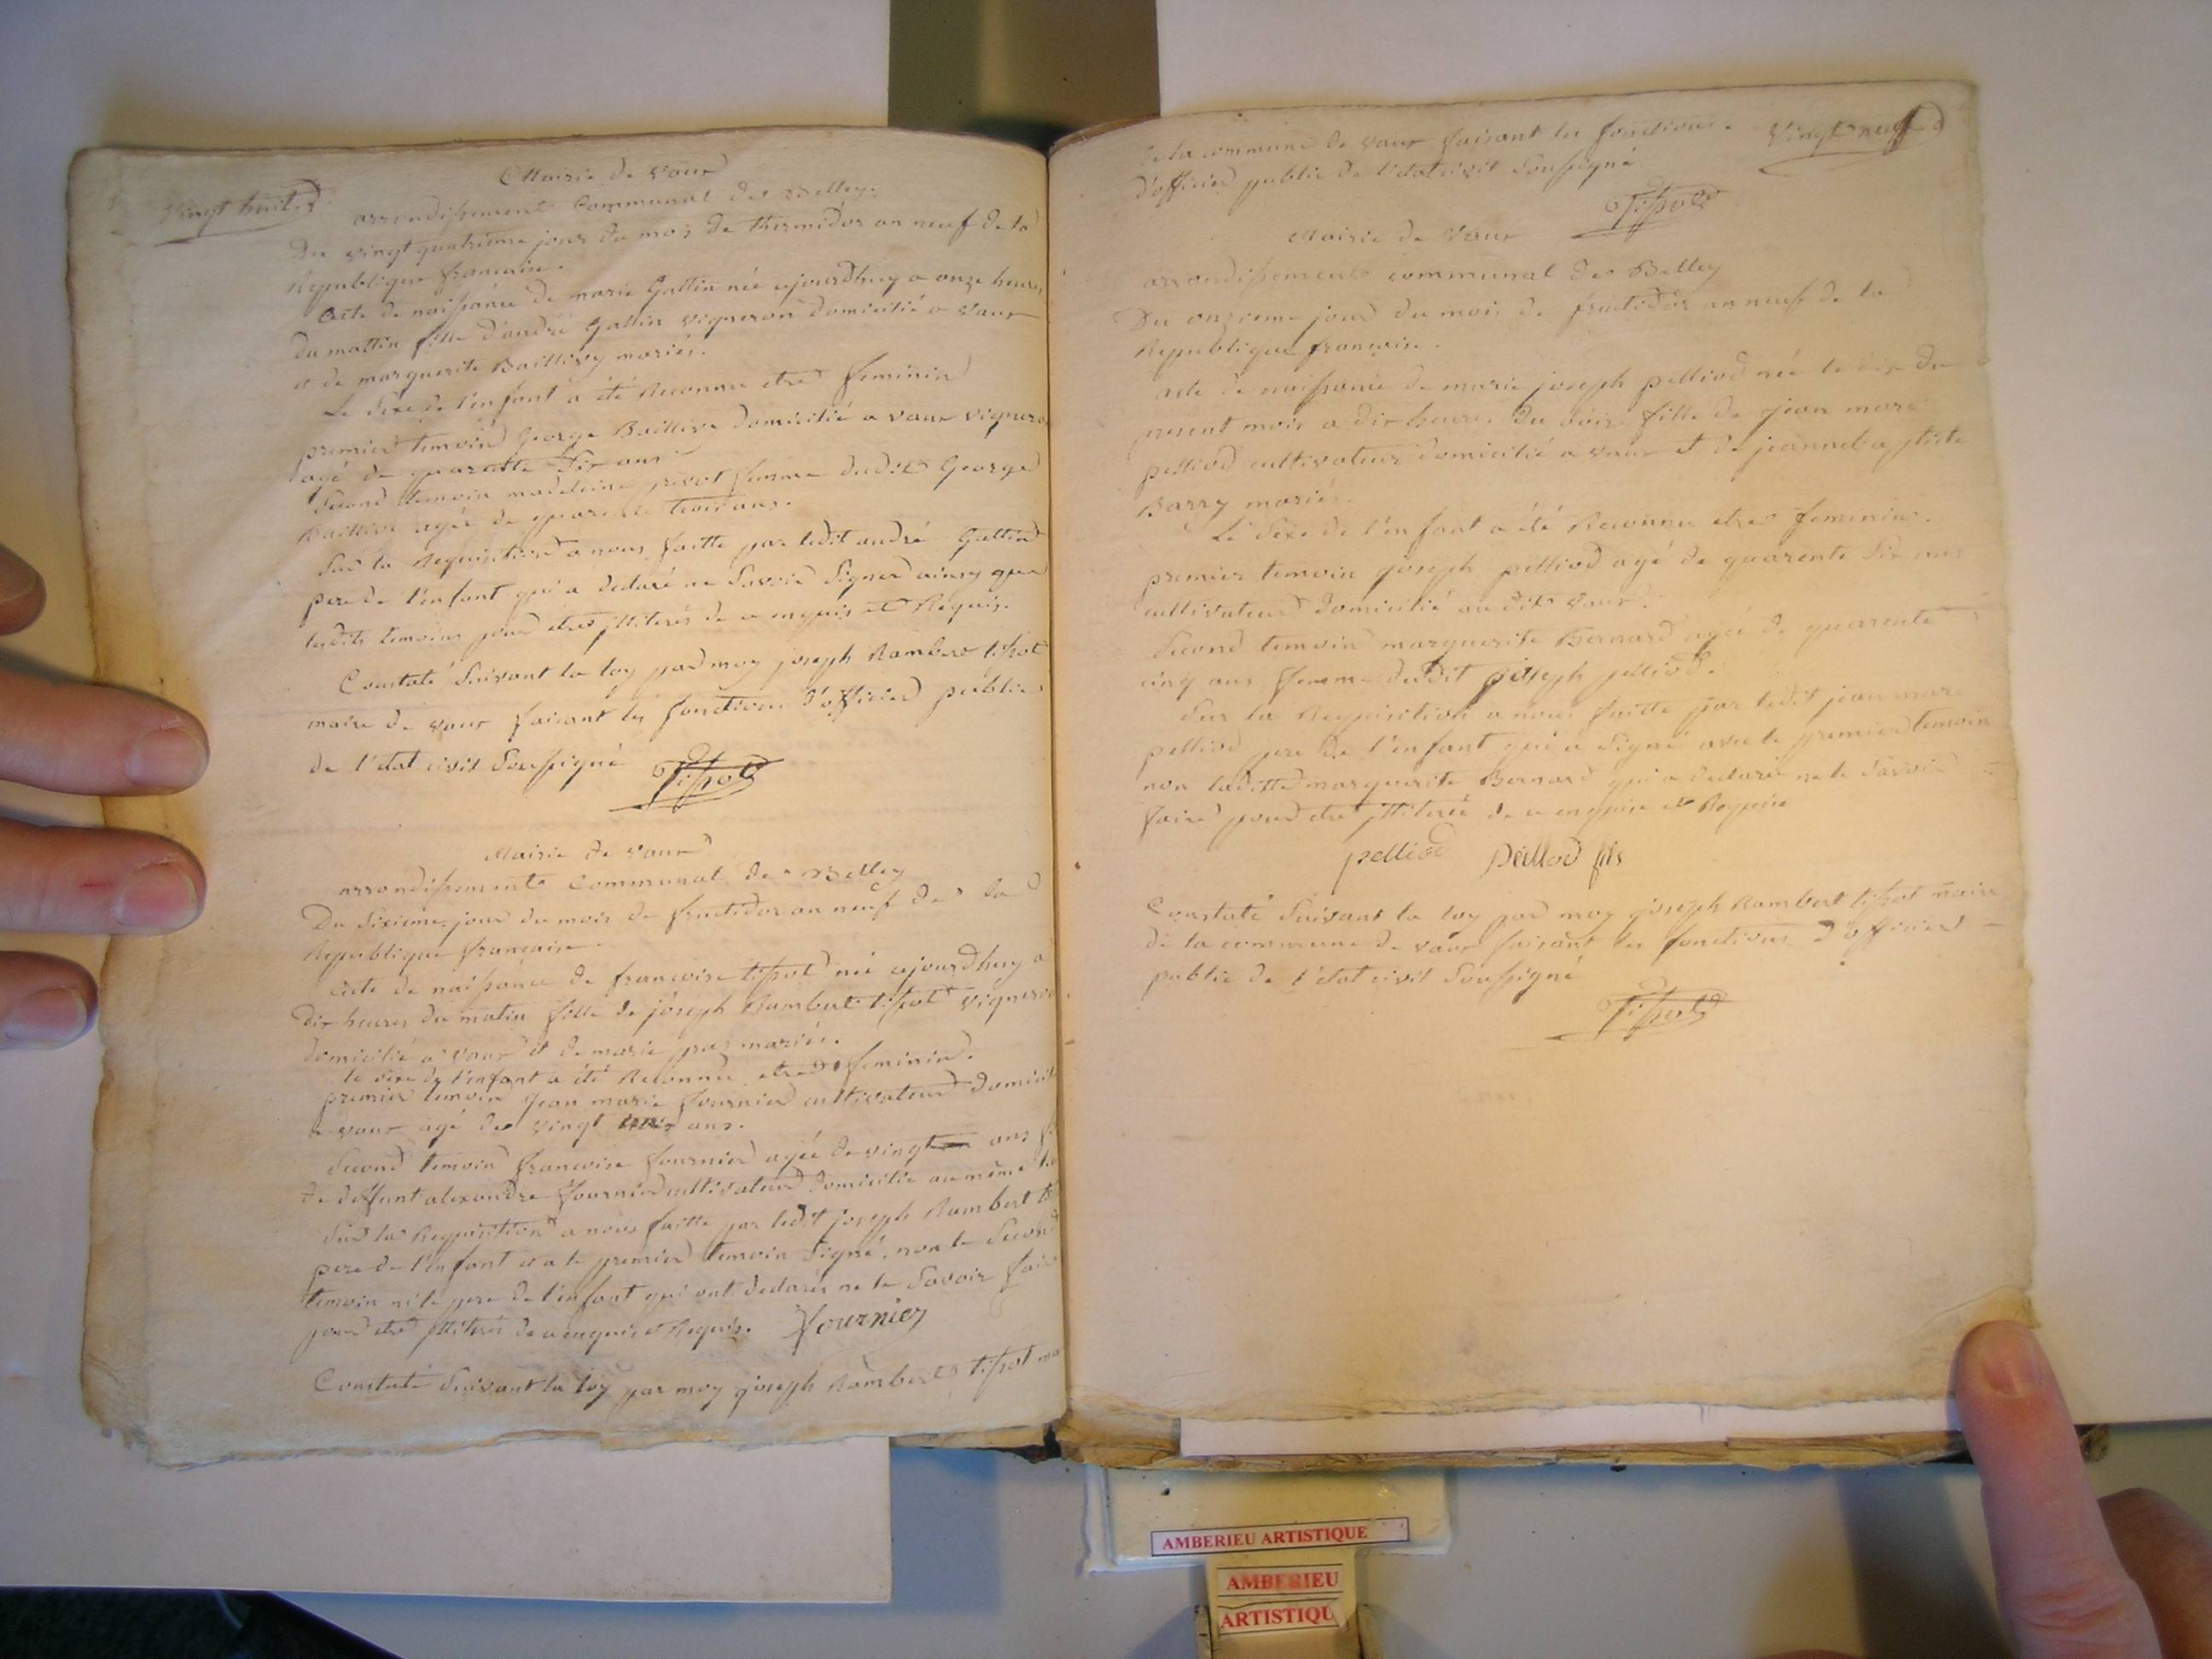 vingt huit
Mairie de Vaux
arrondissement Communal de Belley
Du vingt quatrieme jour du mois de thermidor an neuf de la
Republique francaise.
Acte de naissance de marie Gallin née ajourdhuy a onze heures
du mattin fille d'andré Gallin vigneron domicilié a Vaux
et de marguerite Baillivy mariés.
Le Sexe de l'enfant a été Reconnu etre feminin
premier temoin George Baillivy domicilié a vaux vigneron
agé de quarente Six ans
Second temoin madeleine femme dudit George
Baillivy agée de quarente trois ans.
Sur la Requisition a nous faitte par ledit andré Gallin
pere de l'enfant qui a declaré ne Savoir Signer ainsy que
lesdits temoins pour etre illiterés de ce enquis et Réquis.
Constaté Suivant la loy par moy joseph Rambert tissot
maire de vaux faisant les fonctions d'officier public
de l'etat civil Soussigné
Tissot
Mairie de vaux
arrondissement Communal de Belley
Du Sixieme jour du mois de fructidor an neuf de la
Republique française.
Acte de naissance de francoise tissot née ajourdhuy a
dix heures du matin fille de joseph Rambert tissot vigneron
domicilié a vaux et de marie mariés.
le sexe de l'enfant a été Reconnu etre feminin.
premier temoin Jean marie fournier cultivateur domicilié
a vaux agé de vingt ans.
Second temoin francoise fournier agée de vingt ans
de deffunt alexandre fournier cultivateur domicilié au même
Sur la Requisition a nous faitte par ledit joseph Rambert
pere de l'enfant et a le premier temoin Signé, non le Second
temoin ni le pere de l'enfant qui ont declarés ne le Savoir faire
pour etre illiterés de ce enquis et Requis. fournier
Constaté Suivant la loy par moy joseph Rambert tissot
vingt neuf
de la commune de vaux faisant les fonctions
d'officier public de l'etat civil Soussigné
Tissot
Mairie de Vaux
arrondissement communal de Belley
Du onzieme jour du mois de fructidor an neuf de la
Republique francaise.
acte de naissance de marie joseph pelliod née le dix du
present mois a dix heures du soir fille de jean marc
pelliod cultivateur domicilié a vaux et de jeanne baptiste
Barry mariés.
Le Sexe de l'enfant a été Reconnu etre feminin.
premier temoin joseph pelliod agé de quarente Six ans
cultivateur domicilié au dit Vaux.
Second temoin marguerite Bernard agée de quarente
cinq ans femme dudit joseph pelliod.
Sur la Requisition a nous faitte par ledit jean marc
pelliod pere de l'enfant qui a Signé avec le premier temoin
non laditte marguerite Bernard qui a declaré ne le Savoir
faire pour etre illiterée de ce enquise et Requise
pelliod pelliod fils
Constaté Suivant la loy par moy joseph Rambert tissot maire
de la commune de vaux faisant les fonctions d'officier
public de l'etat civil Soussigné
Tissot
AMBERIEU ARTISTIQUE
AMBERIEU
ARTISTIQU